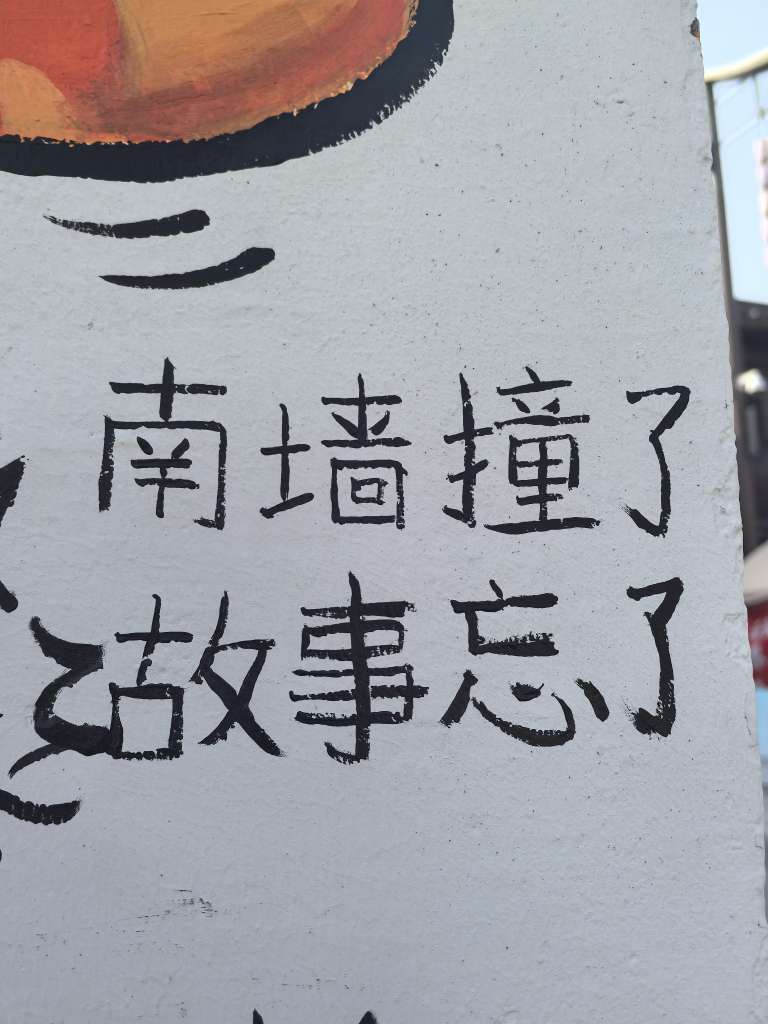 南墙撞了
故事忘了